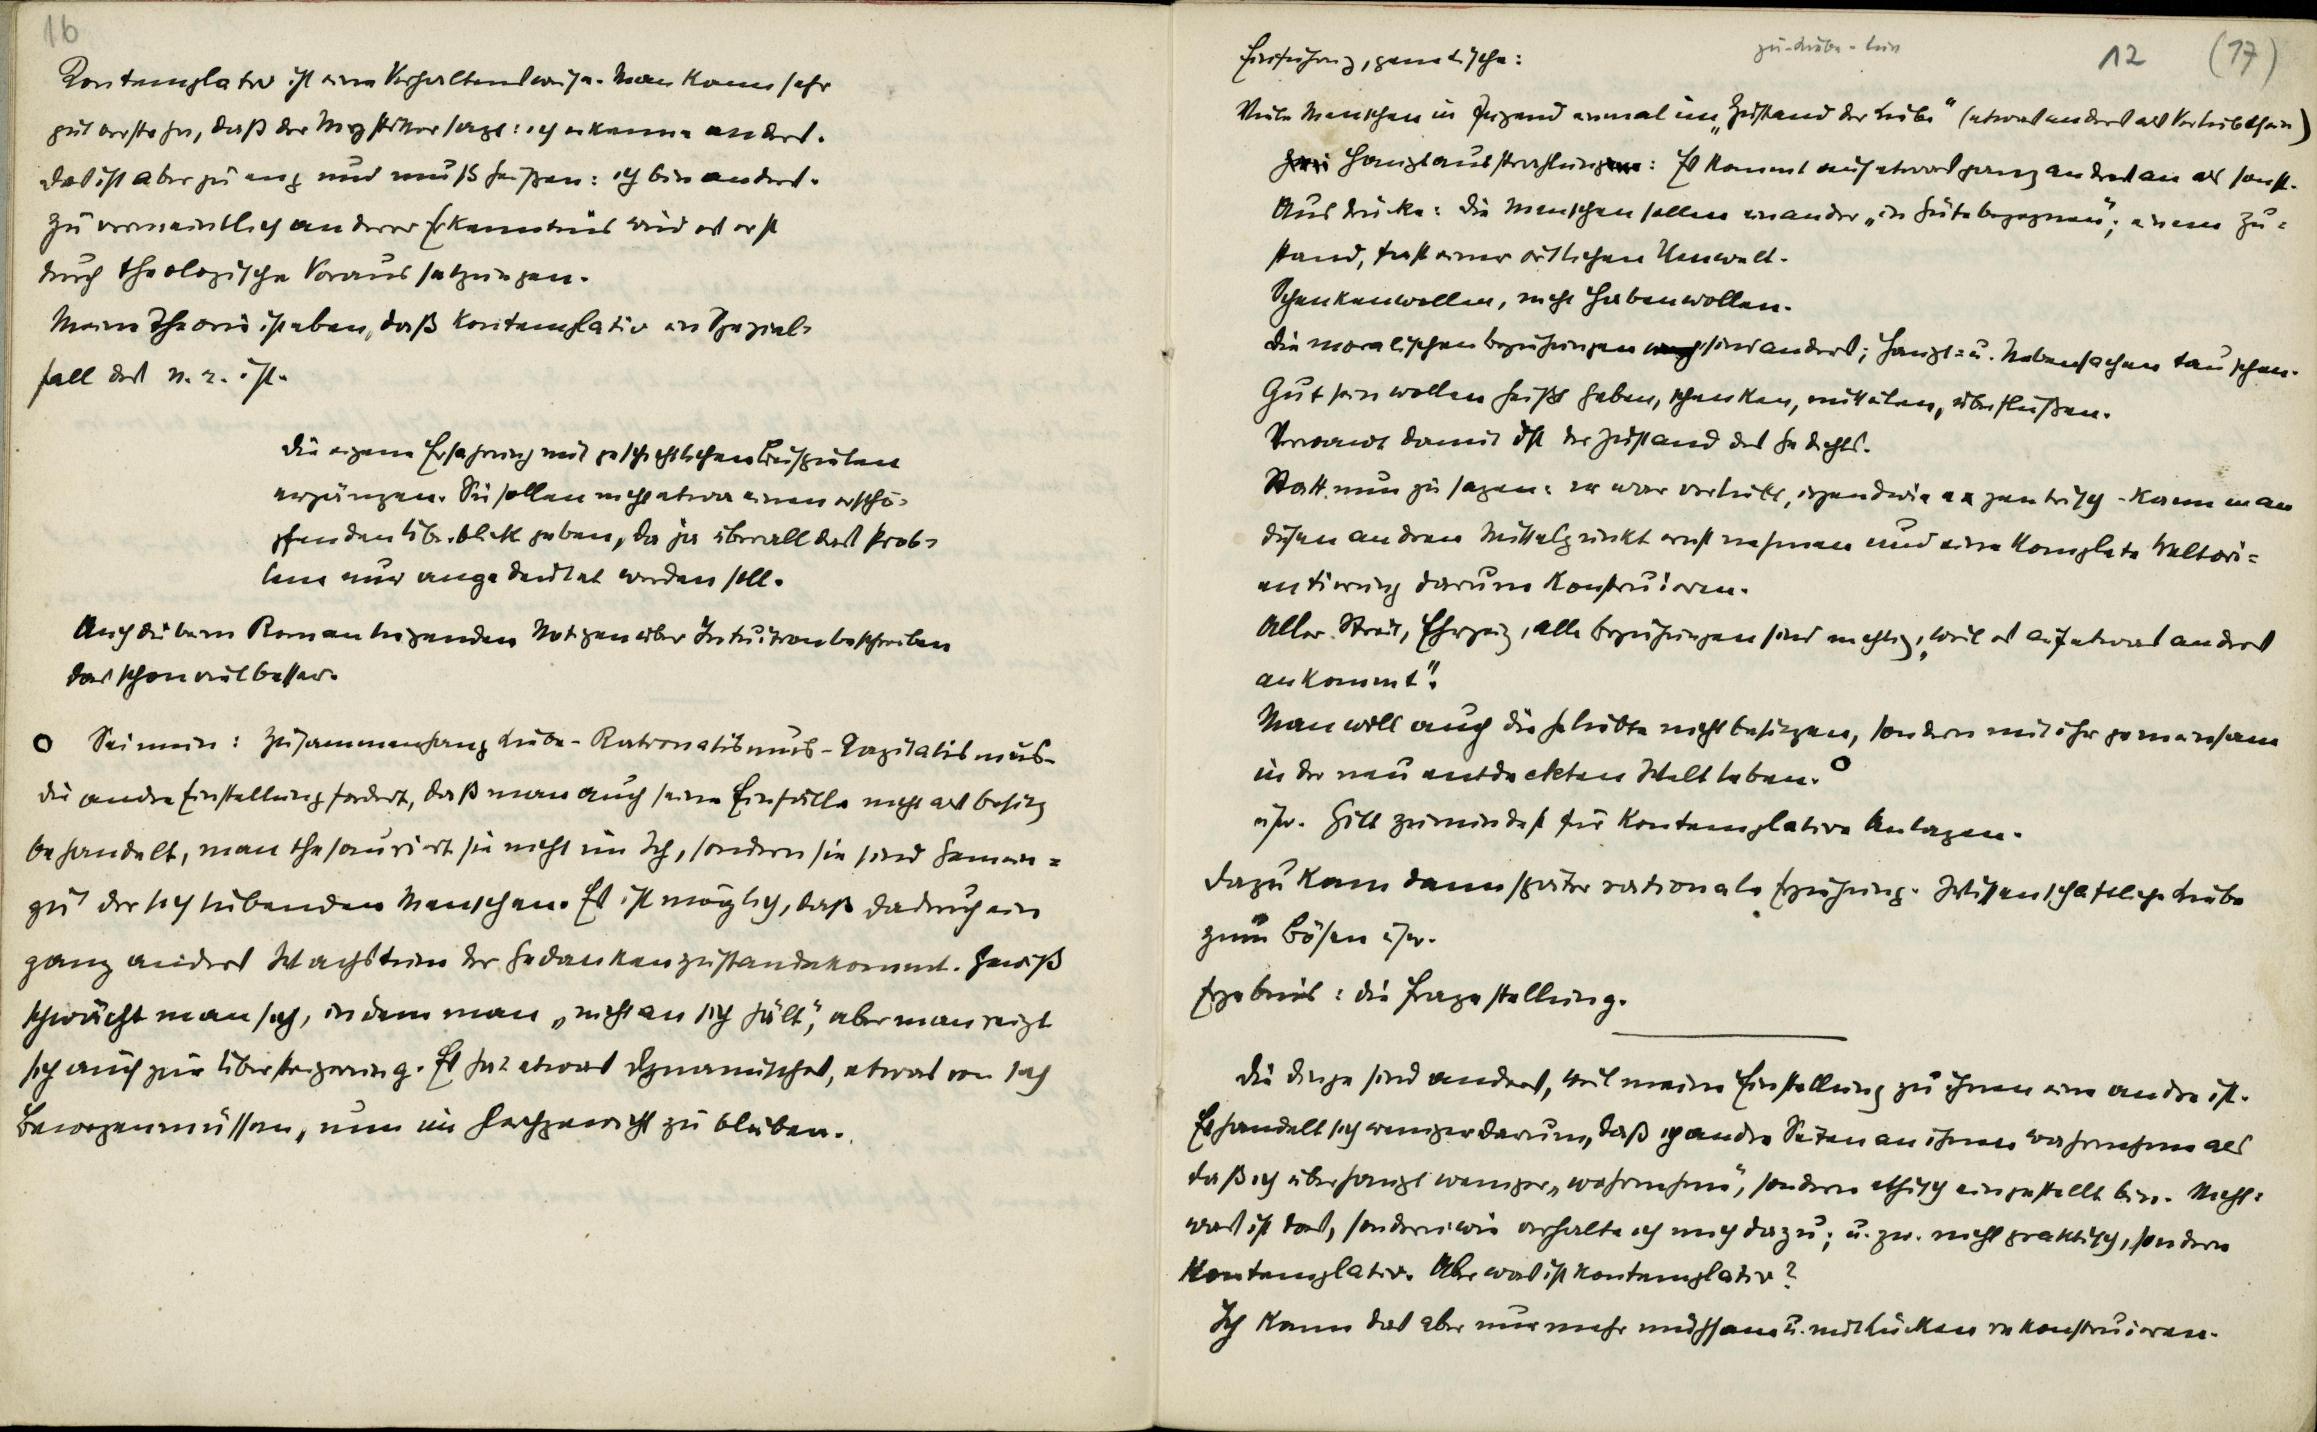 16
Kontemplativ ist eine Verhaltensweise. Man kann sehr
gut verstehn, daß der Mystiker sagt: ich erkenne anders.
Das ist aber zu eng und muß heißen: ich bin anders.
Zu vermeintlich anderer Erkenntnis wird es erst
durch theologische Voraussetzungen.
Meine Theorie ist eben, daß kontemplativ ein Spezial-
fall des n. r. ist.
Die eigene Erfahrung mit geschichtlichen Beispielen
ergänzen. Sie sollen nicht etwa einen erschö-
pfenden Überblick geben, da ja überall das Prob-
lem nur angedeutet werden soll.
Auch die beim Roman liegenden Notizen über Intuition beschreiben
das schon viel besser.
O Sei mein: Zusammenhang Liebe - Rationalismus - Kapitalismus -
die andre Einstellung fordert, daß man auch seine Einfälle nicht als Besitz
behandelt, man thesauriert sie nicht im Ich, sondern sie sind Gemein=
gut der sich liebenden Menschen. Es ist möglich, daß dadurch ein
ganz andres Wachstum der Gedanken zustandekommt. Gewiß
schwächt man sich, indem man „nicht an sich hält", aber man reizt
sich auch zur Übersteigerung. Es hat etwas Dynamisches, etwas von sich
Bewegenmüssen, um im Gleichgewicht zu bleiben.
zu - Liebe - hin
12 (17)
Einführung, genetische:
Viele Menschen in Jugend einmal im „Zustand der Liebe" (etwas andres als Verliebtsein)
Hauptausstrahlung: Es kommt auf etwas ganz andres an als sonst.
Ausdrücke: die Menschen sollen einander „in Güte begegnen"; einem Zu=
stand, fast einer örtlichen Umwelt.
Schenkenwollen, nicht Habenwollen.
Die moralischen Beziehungen sind anders; Haupt= u. Nebensachen tauschen.
Gut sein wollen heißt geben, schenken, mitteilen, überfließen.
Verwandt damit ist der Zustand des Gedichts.
Statt nun zu sagen: er war verliebt, irgendwie exzentrisch - kann man
diesen andren Mittelpunkt ernst nehmen und eine komplete Weltori=
entierung darum konstruieren.
Aller Streit, Ehrgeiz, alle Beziehungen sind nichtig, „weil es auf etwas andres
ankommt".
Man will auch die Geliebte nicht besitzen, sondern mit ihr gemeinsam
in der neu entdeckten Welt leben. O
usw. Gilt zumindest für kontemplative Anlagen.
Dazu kam dann später rationale Erziehung. Wissenschaftliche Liebe
zum Bösen usw.
Ergebnis: die Fragestellung.
Die Dinge sind anders, weil meine Einstellung zu ihnen eine andre ist.
Es handelt sich weniger darum, daß ich andre Seiten an ihnen wahrnehme als
daß ich überhaupt weniger „wahrnehme", sondern ethisch eingestellt bin. Nicht:
was ist das, sondern wie verhalte ich mich dazu; u. zw. nicht praktisch, sondern
kontemplativ. Aber was ist kontemplativ?
Ich kann das aber nur mehr mühsam u. mit Lücken rekonstruieren.